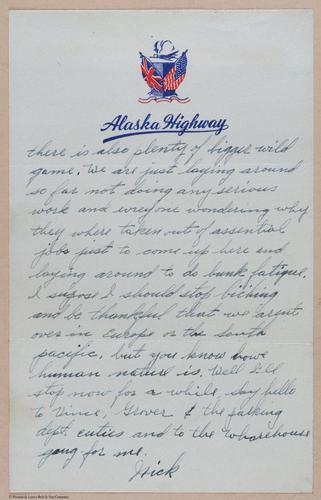 Alaska Highway
there is also plenty of bigger wild
game. We are just laying around
so far not doing any serious
work and evryone wondering why
they where taken out of assential
jobs just to come up here and
laying around to do bunk fatigue.
I supose I should stop bitching
and be thankful that we arent
over in Europe or the South
pacific, but you know howe
human nature is. Well I'll
stop now for a while, say hello
to Vince, Grover & the packing
dept. cuties and to the wharehouse
gang for me.